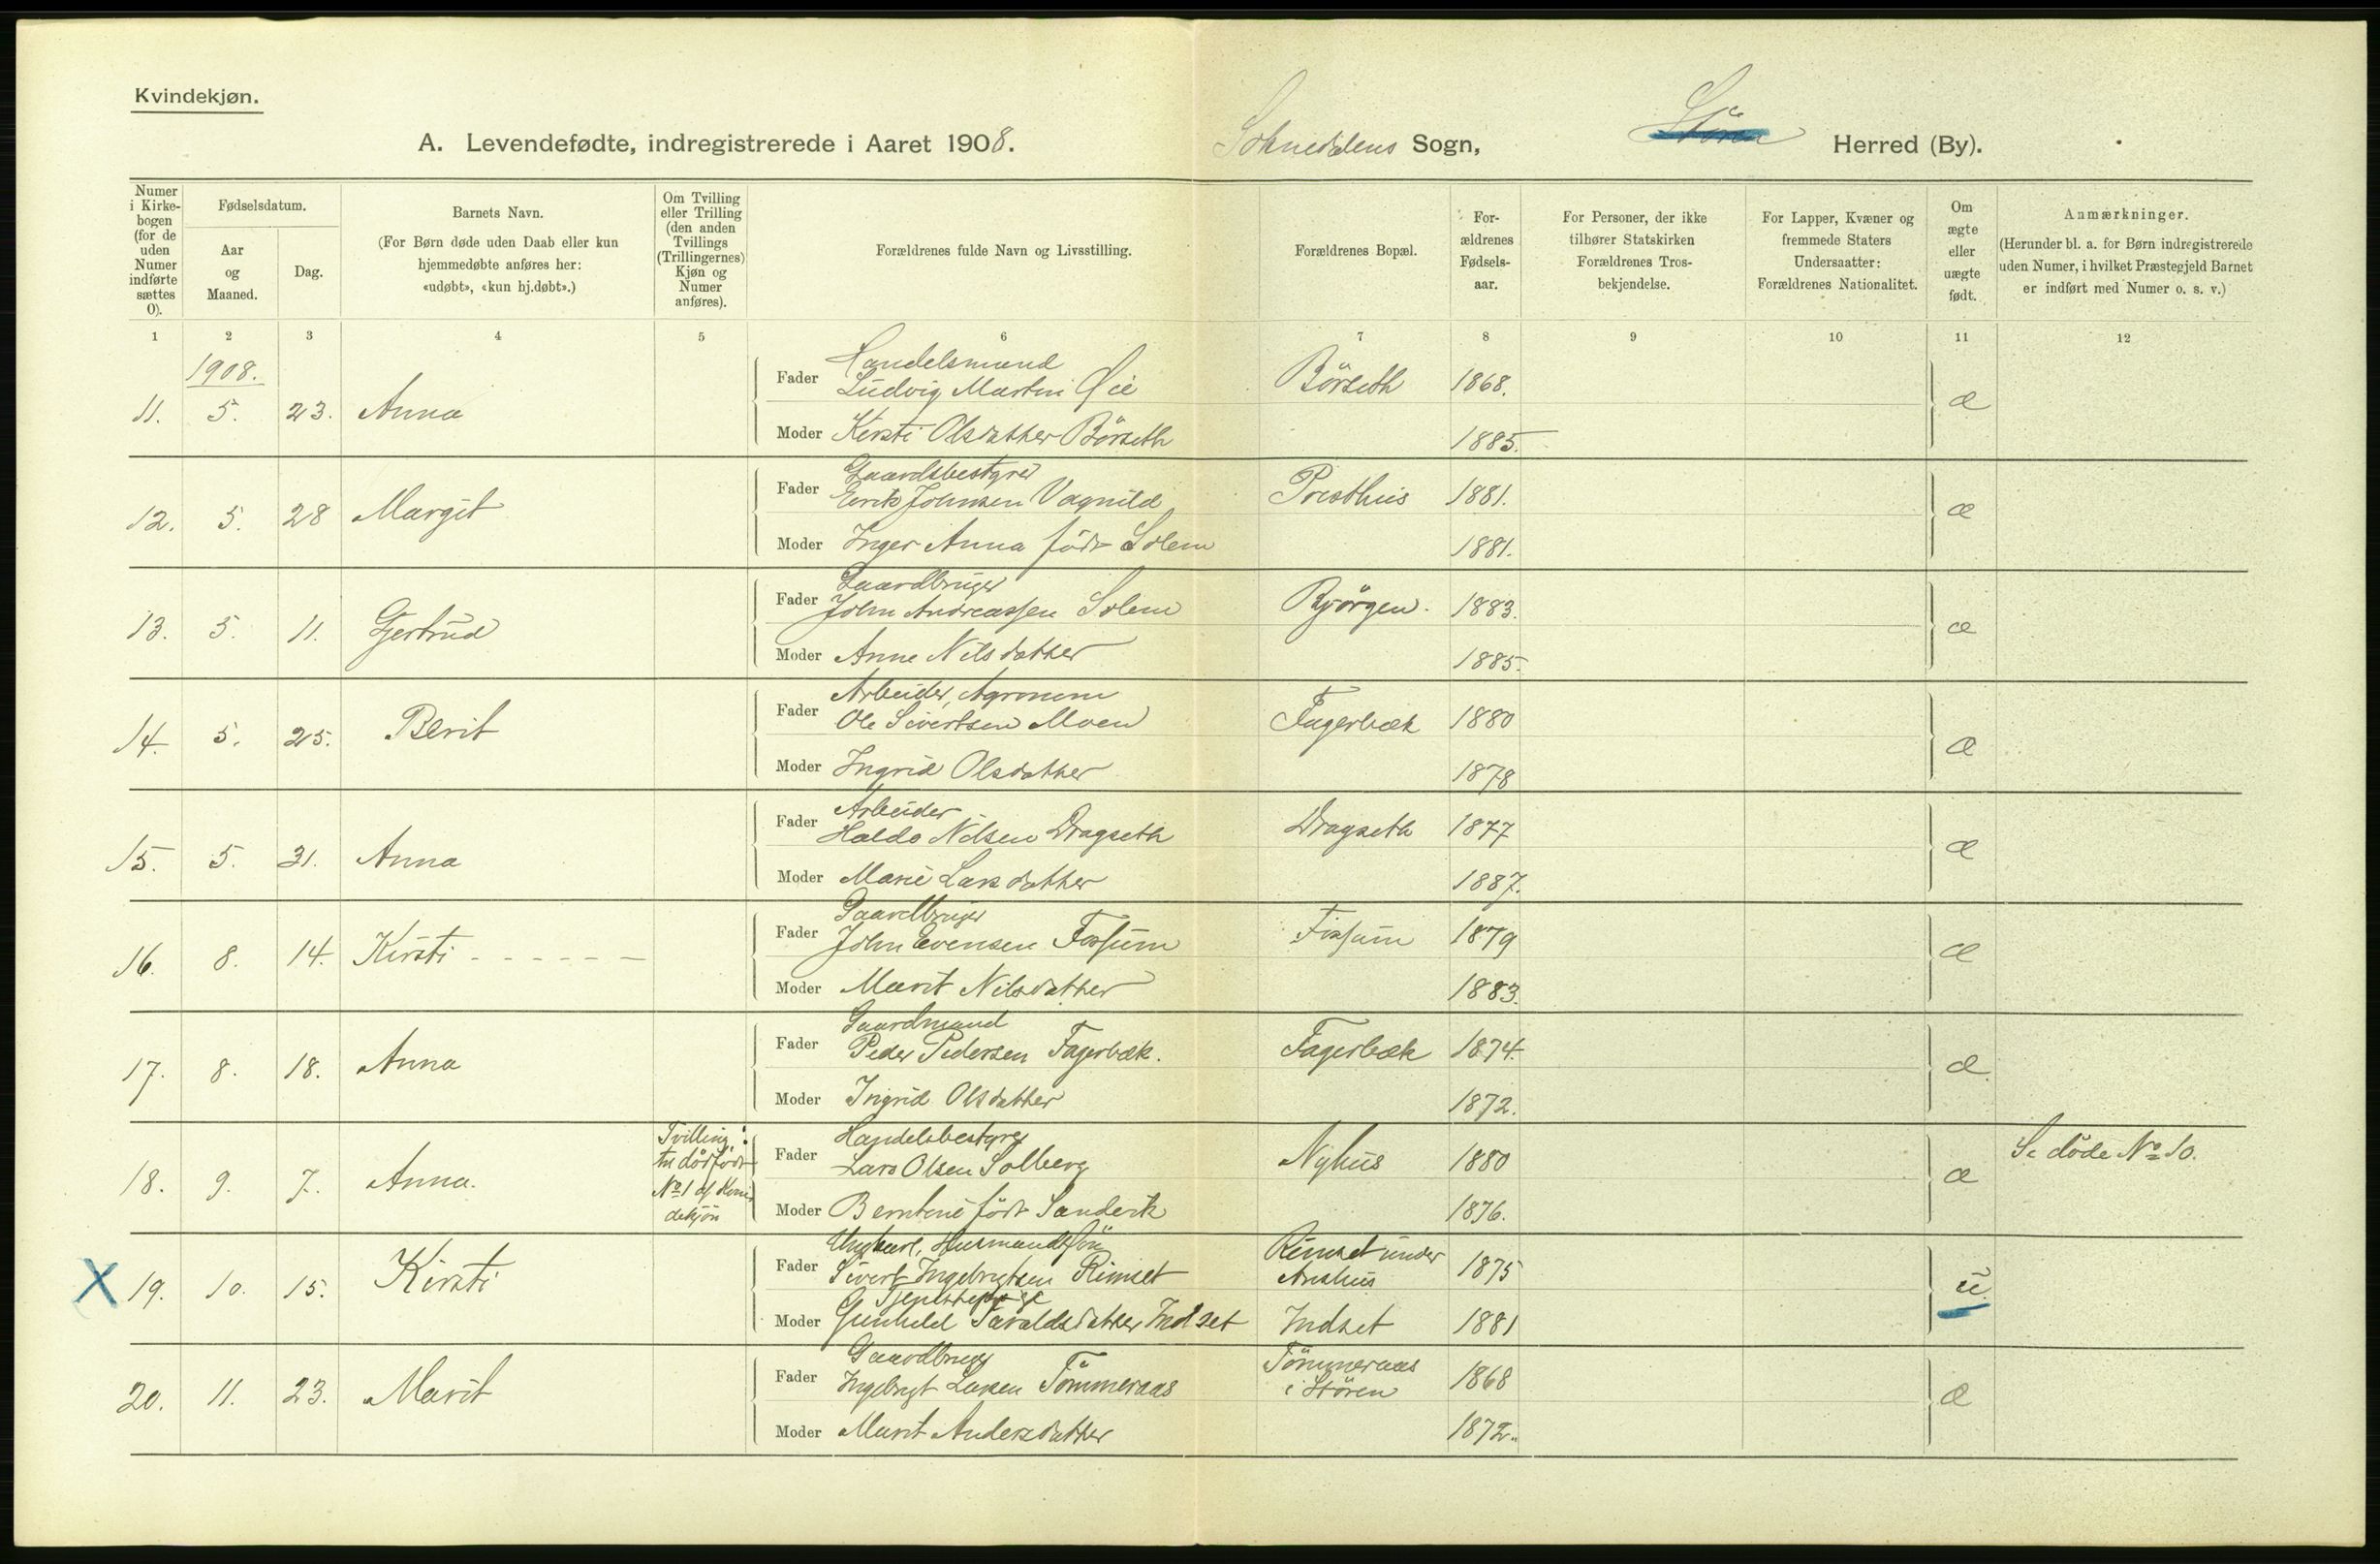 Kvindekjøn.
A. Levendefødte, indregistrerede i Aaret 1908. Soknedalens Sogn, Støren Herred (By).
Numer i Kirke-bogen (for de uden Numer indførte sættes 0).
Fødselsdatum.
Aar og Maaned.
Dag.
Barnets Navn.
(For Børn døde uden Daab eller kun hjemmedøbte anføres her: «udøbt», «kun hj.døbt».)
Om Tvilling eller Trilling (den anden Tvillings (Trillingernes) Kjøn og Numer anføres).
Forældrenes fulde Navn og Livsstilling.
Forældrenes Bopæl.
For-ældrenes Fødsels-aar.
For Personer, der ikke tilhører Statskirken Forældrenes Tros-bekjendelse.
For Lapper, Kvæner og fremmede Staters Undersaatter: Forældrenes Nationalitet.
Om ægte eller uægte født.
Anmærkninger.
(Herunder bl. a. for Børn indregistrerede uden Numer, i hvilket Præstegjeld Barnet er indført med Numer o. s. v.)
1 2 3 4 5 6 7 8 9 10 11 12
1908.
Handelsmand
11. 5. 23. Anna Fader Ludvig Martin Øie Börseth 1868. æ
Moder Kirsti Olsdatter Börseth 1885.
Gaardsbestyrer
12. 5. 28 Margit Fader Eirik Johnsen Vagnild Presthus 1881. æ
Moder Inger Anna född Solem 1881.
Gaardbruger
13. 5. 11. Gjertrud Fader John Andreassen Solem Bjørgen. 1883. æ
Moder Anne Nilsdatter 1885.
Arbeider, Agronom
14. 5. 25. Berit Fader Ole Sivertsen Moen Fagerbæk 1880 æ
Moder Ingrid Olsdatter 1878
Arbeider
15. 5. 31. Anna Fader Haldo Nilsen Dragseth Dragseth 1877 æ
Moder Marie Larsdatter 1887.
Gaardbruger
16. 8. 14. Kirsti Fader John Evensen Fossum Fossum 1879 æ
Moder Marit Nilsdatter 1883.
Gaardmand
17. 8. 18. Anna Fader Peder Pedersen Fagerbæk. Fagerbæk 1874. æ
Moder Ingrid Olsdatter 1872.
Tvilling: Handelsbestyrer
18. 9. 7. Anna. til dödfödt Fader Lars Olsen Solberg Nyhus 1880 æ Se döde No 10.
No 1 af Kvin
dekjön Moder Berntine född Sanderk 1876.
Ungkarl, Husmandssön Rimset under
X 19. 10. 15. Kirsti Fader Sivert Ingebrigtsen Rimset Aushus 1875 u.
Tjenestepige
Moder Gunhild Tavaldsdatter Indset Indset 1881
Gaardbruger Tömmeraas
20. 11. 23. Marit Fader Ingebrigt Larsen Tömmeraas i Stören 1868 æ
Moder Marit Andersdatter 1872.